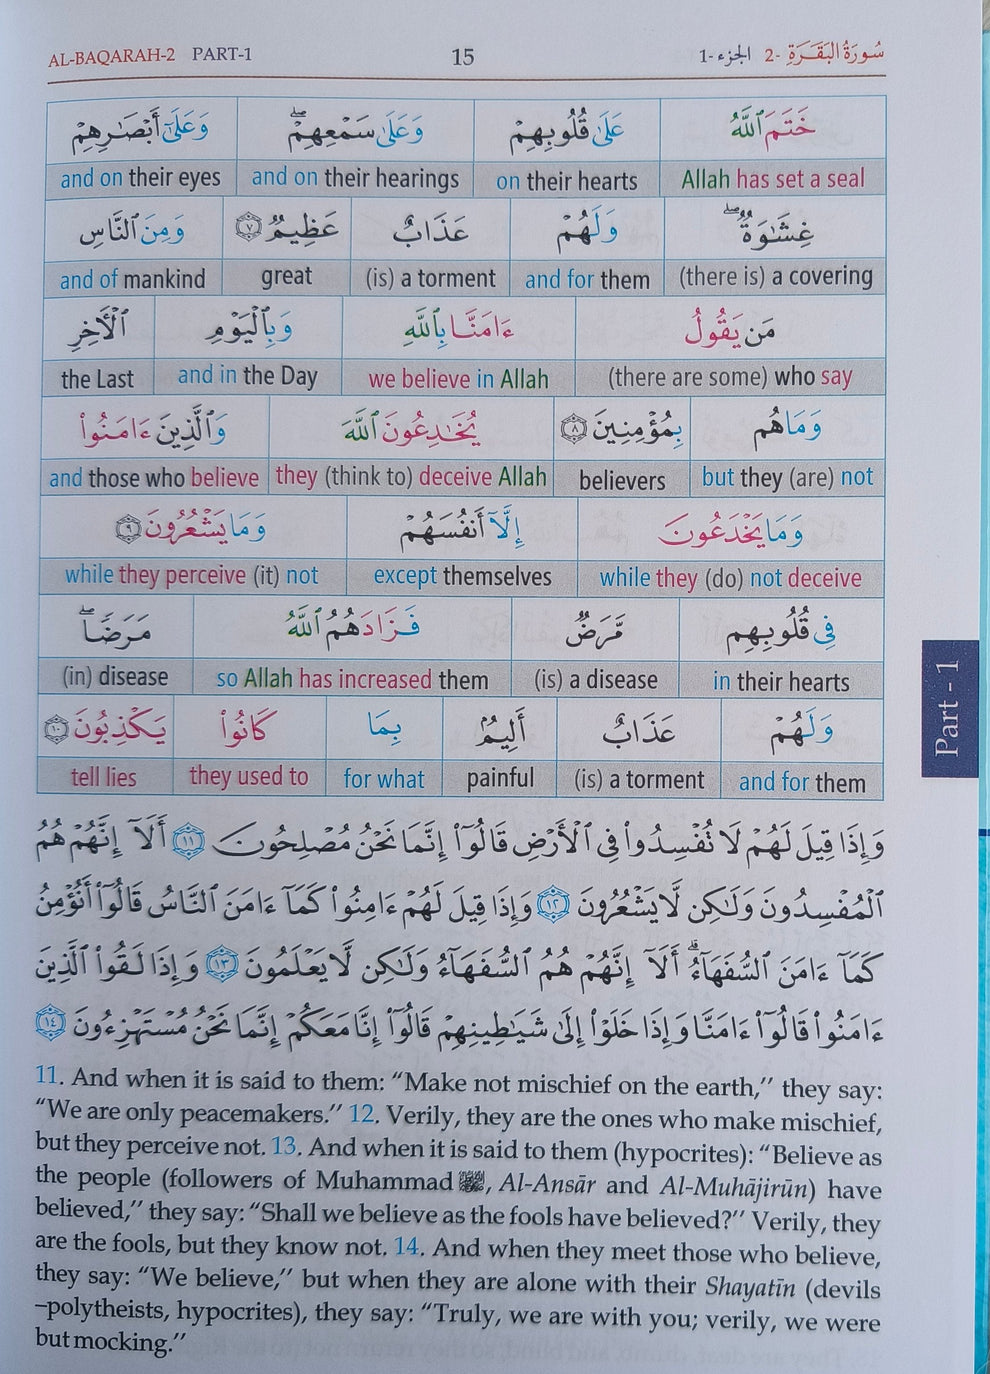 AL-BAQARAH-2 PART-1 15 سُورَةُ البَقَرَةِ -2 الجزء -1
خَتَمَ ٱللَّهُ عَلَىٰ قُلُوبِهِمْ وَعَلَىٰ سَمْعِهِمْ ۖ وَعَلَىٰٓ أَبْصَـٰرِهِمْ
Allah has set a seal on their hearts and on their hearings and on their eyes
غِشَـٰوَةٌ ۖ وَلَهُمْ عَذَابٌ عَظِيمٌ ٧ وَمِنَ ٱلنَّاسِ
(there is) a covering and for them (is) a torment great and of mankind
مَن يَقُولُ ءَامَنَّا بِٱللَّهِ وَبِٱلْيَوْمِ ٱلْـَٔاخِرِ
(there are some) who say we believe in Allah and in the Day the Last
وَمَا هُم بِمُؤْمِنِينَ ٨ يُخَـٰدِعُونَ ٱللَّهَ وَٱلَّذِينَ ءَامَنُوا۟
but they (are) not believers they (think to) deceive Allah and those who believe
وَمَا يَخْدَعُونَ إِلَّآ أَنفُسَهُمْ وَمَا يَشْعُرُونَ ٩
while they (do) not deceive except themselves while they perceive (it) not
فِى قُلُوبِهِم مَّرَضٌ فَزَادَهُمُ ٱللَّهُ مَرَضًا ۖ
in their hearts (is) a disease so Allah has increased them (in) disease
وَلَهُمْ عَذَابٌ أَلِيمٌۢ بِمَا كَانُوا۟ يَكْذِبُونَ ١٠
and for them (is) a torment painful for what they used to tell lies
وَإِذَا قِيلَ لَهُمْ لَا تُفْسِدُوا۟ فِى ٱلْأَرْضِ قَالُوٓا۟ إِنَّمَا نَحْنُ مُصْلِحُونَ ١١ أَلَآ إِنَّهُمْ هُمُ
ٱلْمُفْسِدُونَ وَلَـٰكِن لَّا يَشْعُرُونَ ١٢ وَإِذَا قِيلَ لَهُمْ ءَامِنُوا۟ كَمَآ ءَامَنَ ٱلنَّاسُ قَالُوٓا۟ أَنُؤْمِنُ
كَمَآ ءَامَنَ ٱلسُّفَهَآءُ ۗ أَلَآ إِنَّهُمْ هُمُ ٱلسُّفَهَآءُ وَلَـٰكِن لَّا يَعْلَمُونَ ١٣ وَإِذَا لَقُوا۟ ٱلَّذِينَ
ءَامَنُوا۟ قَالُوٓا۟ ءَامَنَّا وَإِذَا خَلَوْا۟ إِلَىٰ شَيَـٰطِينِهِمْ قَالُوٓا۟ إِنَّا مَعَكُمْ إِنَّمَا نَحْنُ مُسْتَهْزِءُونَ ١٤
11. And when it is said to them: “Make not mischief on the earth,” they say:
“We are only peacemakers.” 12. Verily, they are the ones who make mischief,
but they perceive not. 13. And when it is said to them (hypocrites): “Believe as
the people (followers of Muhammad ﷺ, Al-Ansār and Al-Muhājirūn) have
believed,” they say: “Shall we believe as the fools have believed?” Verily, they
are the fools, but they know not. 14. And when they meet those who believe,
they say: “We believe,” but when they are alone with their Shayatīn (devils
–polytheists, hypocrites), they say: “Truly, we are with you; verily, we were
but mocking.”
Part - 1